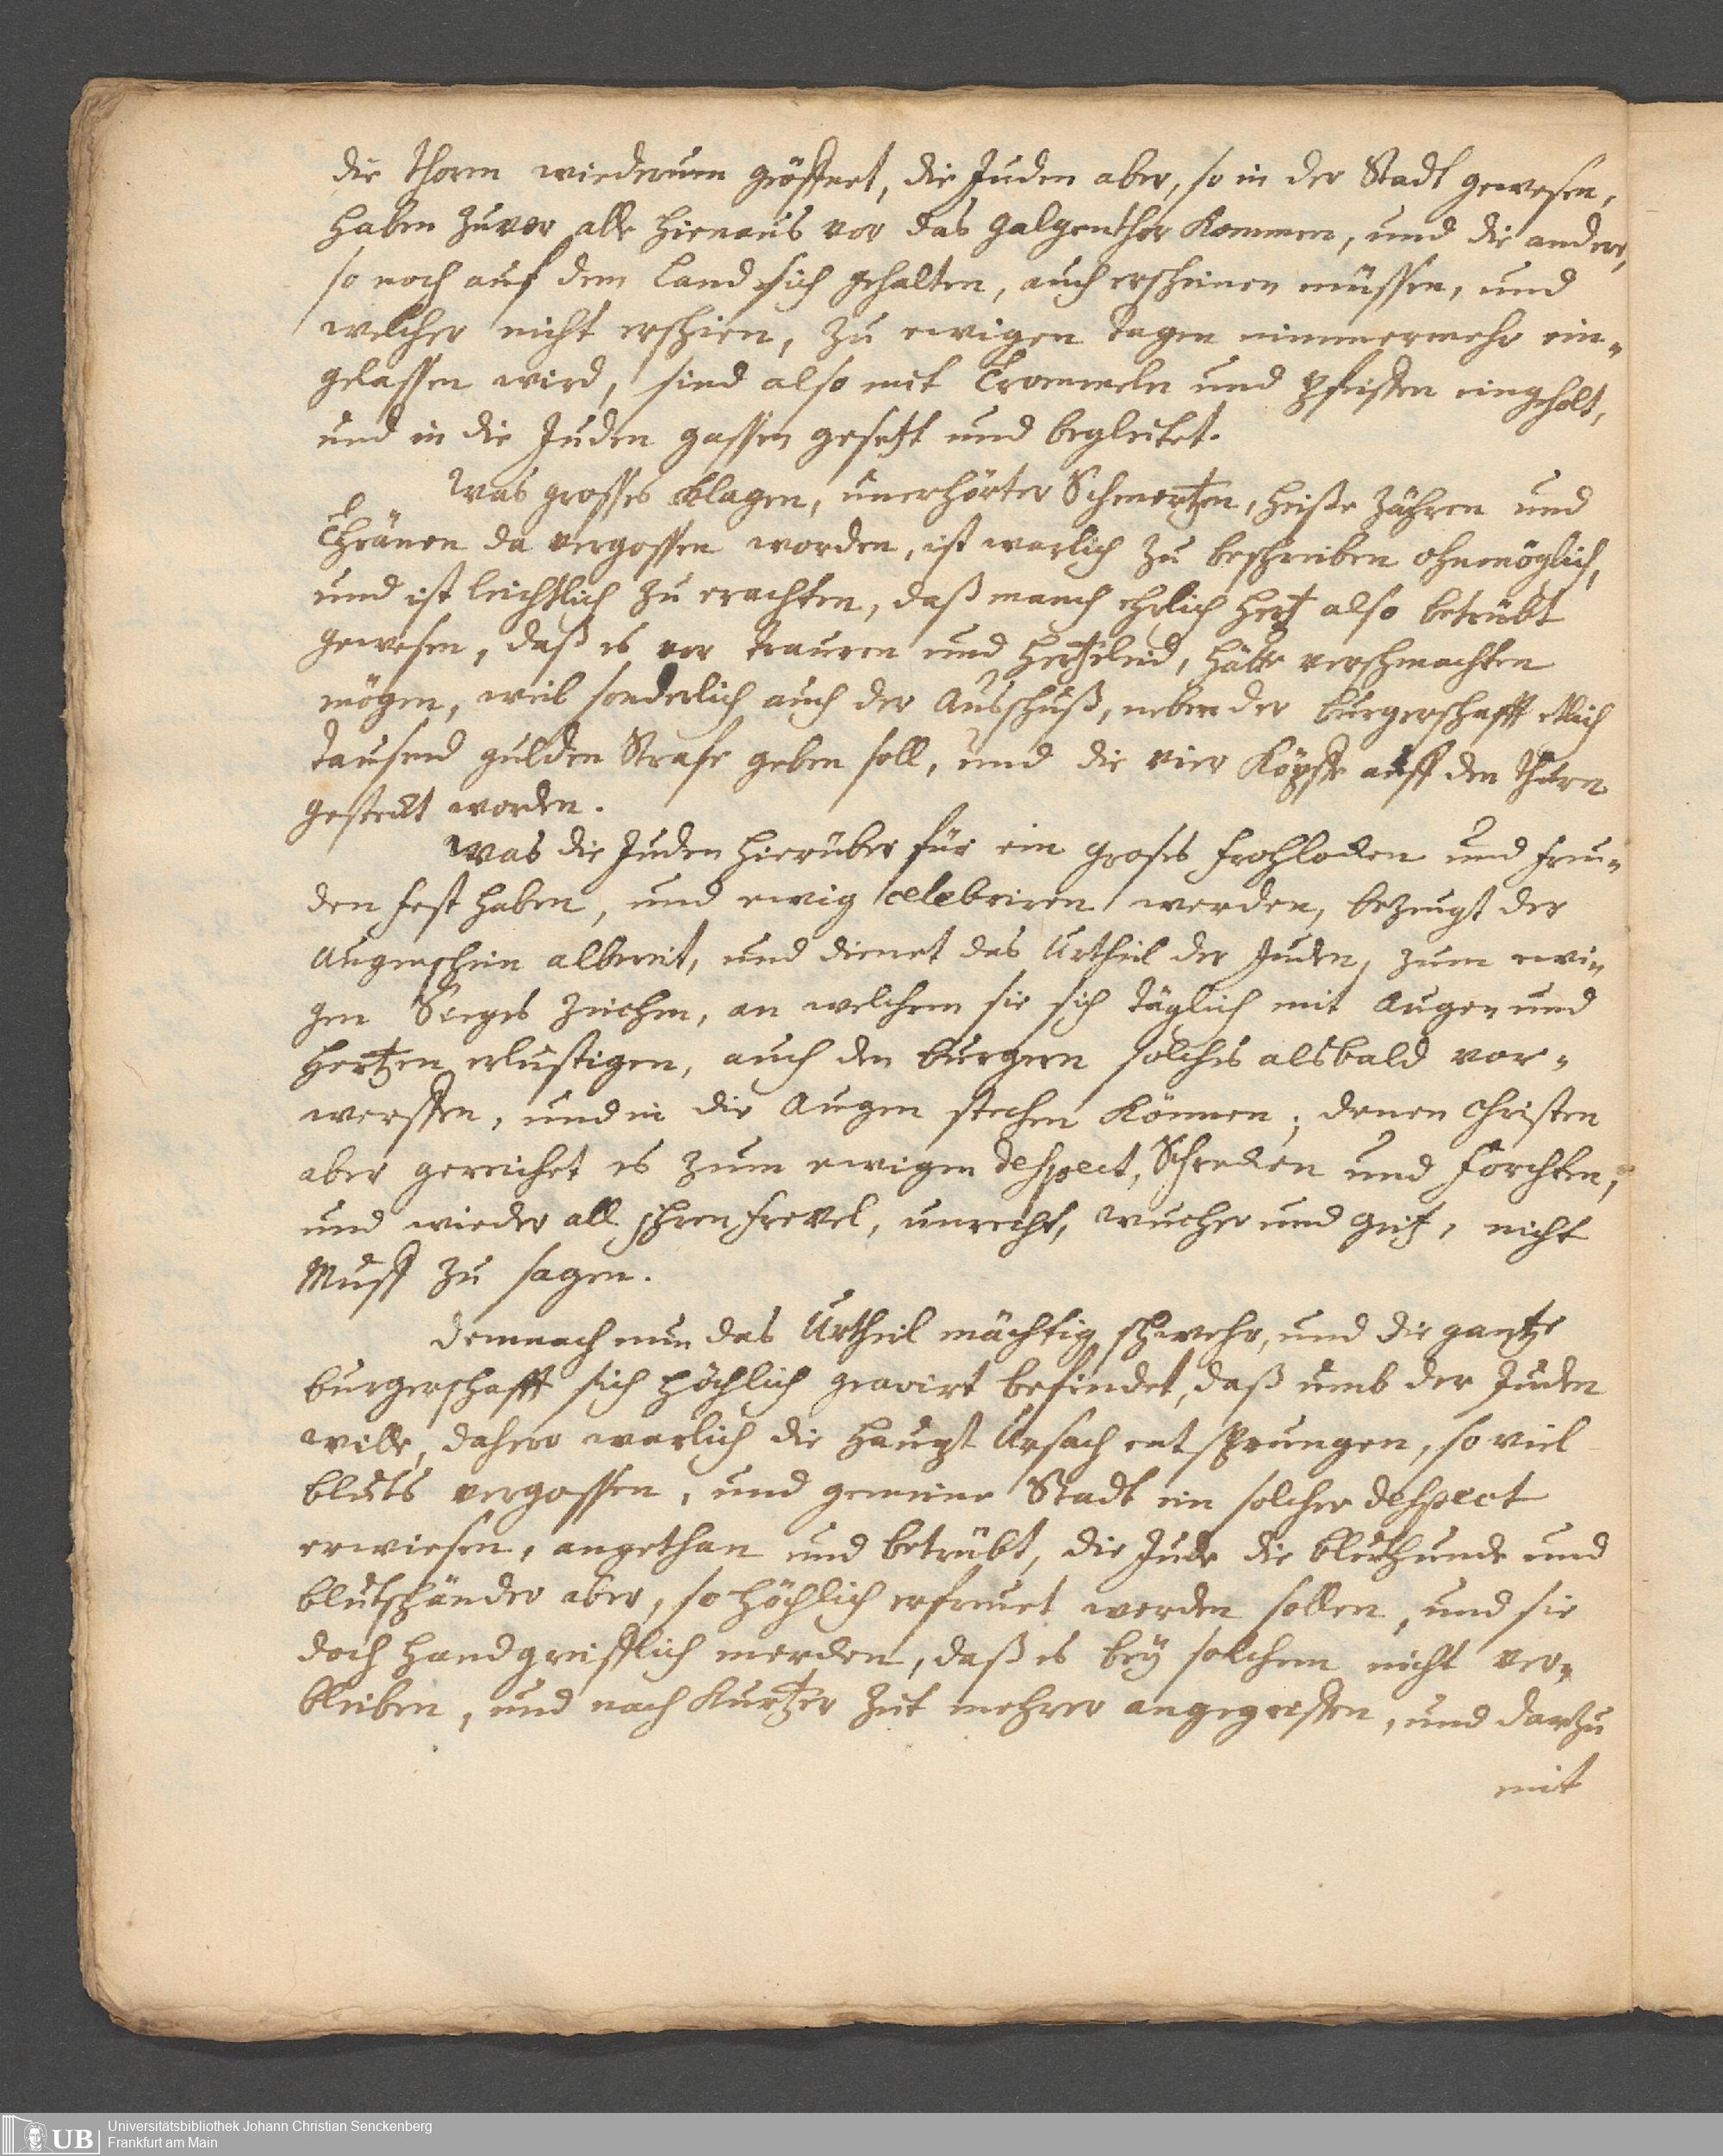 die thoren wiederum geöffnet, die Juden aber, so in der Stadt gewesen,
haben zuvor alle hienaus vor das Galgenthor kommen, und die andere,
so noch auf dem Land sich gehalten, auch erscheinen müssen, und
welcher nicht erschien, zu ewigen tagen nimmermehr ein-
gelassen wird, sind also mit Trommeln und Pfeiffen eingeholt,
und in die Juden gassen gesetzt und begleitet.
Was grosses klagen, unerhörter Schmertzen, heiße Zähren und
Thränen da vergossen worden, ist warlich zu beschreiben ohnmöglich,
und ist leichtlich zu erachten, daß manch ehrlich hertz also betrübt
gewesen, daß es vor trauren und hertzleid, hätte verschmachten
mögen, weil sonderlich auch der Ausschuß, neben der burgerschafft etlich
tausend gulden Strafe geben soll, und die vier Köpffe auff den thurn
gesteckt worden.
Was die Juden hierüber für ein groses frohlocken und freu-
den fest haben, und ewig celebriren werden, bezeugt der
Augenschein albereit, und dienet das Urtheil der Juden, zum ewi-
gen Sieges Zeichen, an welchem sie sich täglich mit Augen und
hertzen erlustigen, auch den burgern solches alsbald vor-
werffen, und in die Augen stechen können; denen Christen
aber gereichet es zum ewigen despect, Schrecken und forchten,
und wieder all ihren frevel, unrecht, wucher und geitz, nicht
Muff zu sagen.
demnach nun das Urtheil mächtig schwehr, und die gantze
burgerschafft sich höchlich gravirt befindet, daß umb der Juden
wille, dahero warlich die haupt Ursach entsprungen, so viel
bluts vergossen, und gemeine Stadt ein solcher despect
erwiesen, angethan und betrübt, die Jude die bluthunde und
blutschänder aber, so höchlich erfreuet werden sollen, und sie
doch handgreifflich mercken, daß es bey solchem nicht ver-
bleiben, und nach kurtzer Zeit mehrer angegriffen, und darzu
mit
UB
Universitätsbibliothek Johann Christian Senckenberg
Frankfurt am Main